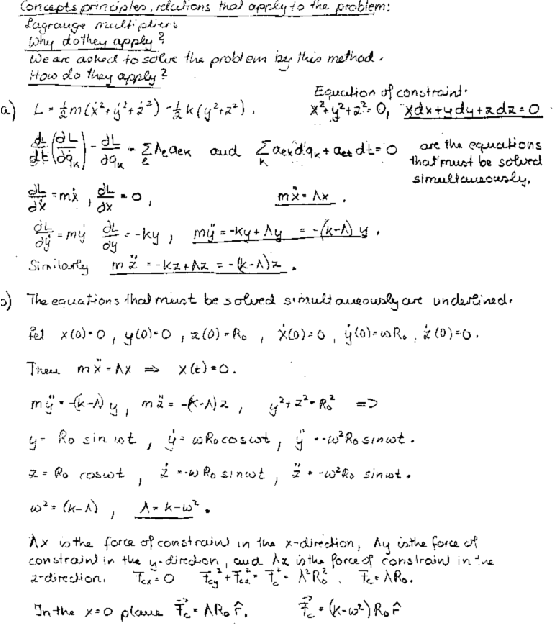 Concepts, principles, relations that apply to the problem:
Lagrange multipliers
Why do they apply?
We are asked to solve the problem by this method.
How do they apply?
Equation of constraint:
a) L = ½m(ẋ²+ẏ²+ż²) - ½k(y²+z²). x²+y²+z²=0, xdx+ydy+zdz=0
d/dt(∂L/∂q̇ₖ) - ∂L/∂qₖ = Σₑ λₑaₑₖ and Σₖ aₑₖdqₖ + aₑₜdt=0 are the equations
that must be solved
simultaneously.
∂L/∂ẋ = mẋ, ∂L/∂x = 0, mẍ = λx.
∂L/∂ẏ = mẏ ∂L/∂y = -ky, mÿ = -ky+λy = -(k-λ)y.
Similarly m z̈ = -kz+λz = -(k-λ)z.
b) The equations that must be solved simultaneously are underlined.
Let x(0)=0, y(0)=0, z(0)=R₀, ẋ(0)=0, ẏ(0)=ωR₀, ż(0)=0.
Then mẍ=λx ⇒ x(t)=0.
mÿ=-(k-λ)y, mz̈=-(k-λ)z, y²+z²=R₀² =>
y= R₀ sin ωt, ẏ= ωR₀cosωt, ÿ=-ω²R₀ sinωt.
z = R₀ cosωt, ż = -ωR₀ sinωt, z̈ = -ω²R₀ sinωt.
ω²=(k-λ), λ=k-ω².
λx is the force of constraint in the x-direction, λy is the force of
constraint in the y-direction, and λz is the force of constraint in the
z-direction. F_cx=0 F_cy²+F_cz²=F_c²=λ²R₀². F_c=λR₀.
In the x=0 plane F⃗_c=λR₀r̂. F⃗_c=(k-ω²)R₀r̂